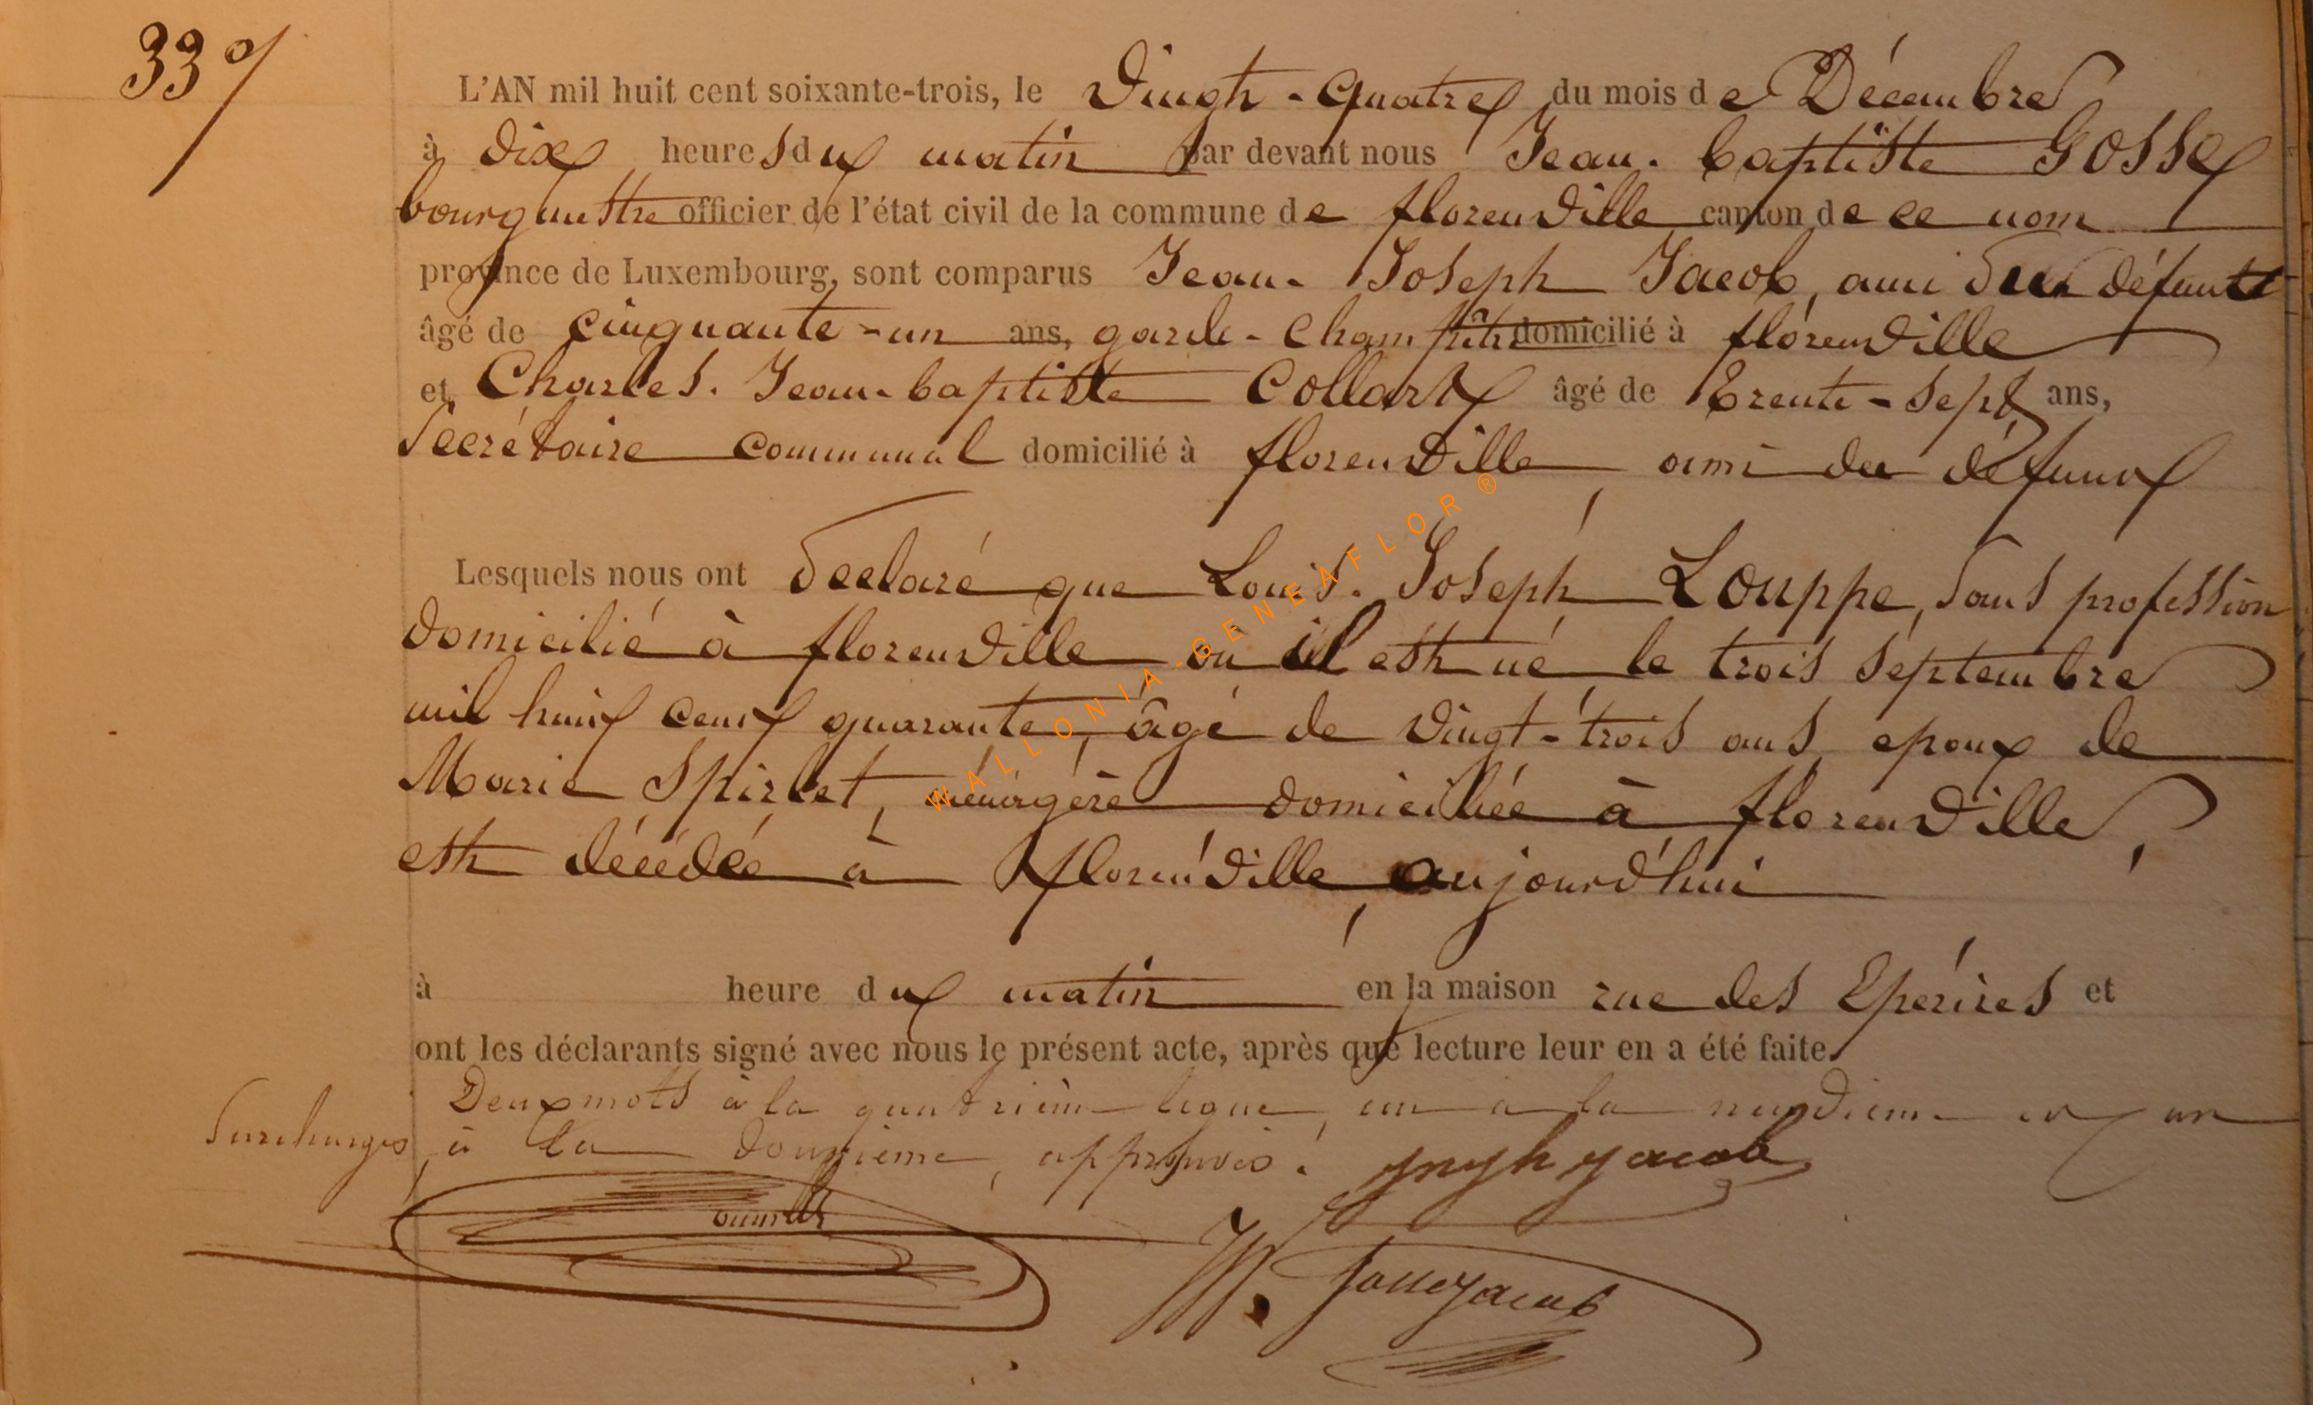 33 %
L'AN mil huit cent soixante-trois, le Vingt-quatre du mois de Décembre
à dix heures du matin par devant nous Jean-baptiste GOSSE
bourgmestre officier de l'état civil de la commune de florenville canton de ce nom
province de Luxembourg, sont comparus Jean-Joseph Jacob, ami du défunt
âgé de cinquante-un ans, garde-champêtre domicilié à florenville
et Charles-Jean-baptiste Collart âgé de trente-sept ans,
secrétaire communal domicilié à florenville, ami du défunt
Lesquels nous ont déclaré que Louis-Joseph Louppe, sans profession
domicilié à florenville où il est né le trois septembre
mil huit cent quarante, âgé de vingt-trois ans, époux de
Marie Spirlet, ménagère domiciliée à florenville,
est décédé à florenville, aujourd'hui
à heure du matin en la maison rue des Epérires et
ont les déclarants signé avec nous le présent acte, après que lecture leur en a été faite.
Deux mots à la quatrième ligne, un à la et un
surchargés, à la douzième, approuvés.
Joseph jacob
WALLONIA-GENEAFLOR ®